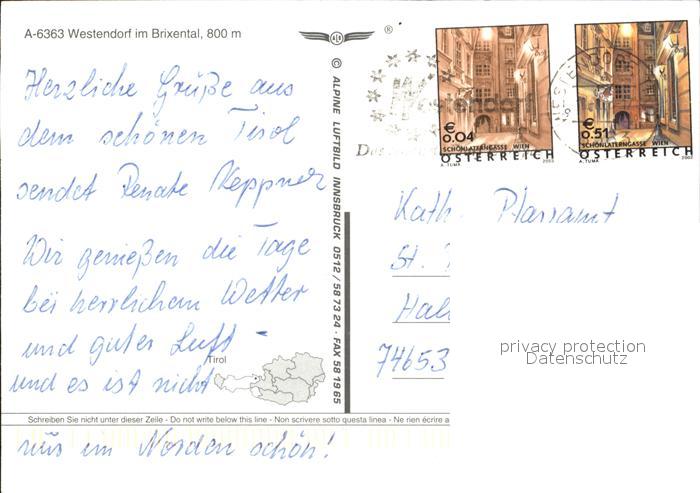 A-6363 Westendorf im Brixental, 800 m
Herzliche Grüße aus
dem schönen Tirol
sendet Renate Keppner
Wir genießen die Tage
bei herrlichem Wetter
und guter Luft -
und es ist nicht
nur im Norden schön!
Tirol
Schreiben Sie nicht unter dieser Zeile - Do not write below this line - Non scrivere sotto questa linea - Ne rien écrire a
© ALPINE LUFTBILD INNSBRUCK 0512 / 58 73 24 · FAX 58 19 65
®
€ 0,04
SCHÖNLATERNGASSE WIEN
ÖSTERREICH
A. TUMA 2003
€ 0,51
SCHÖNLATERNGASSE WIEN
ÖSTERREICH
A. TUMA 2003
Westendorf
Kath. Pfarramt
St.
74653
privacy protection
Datenschutz